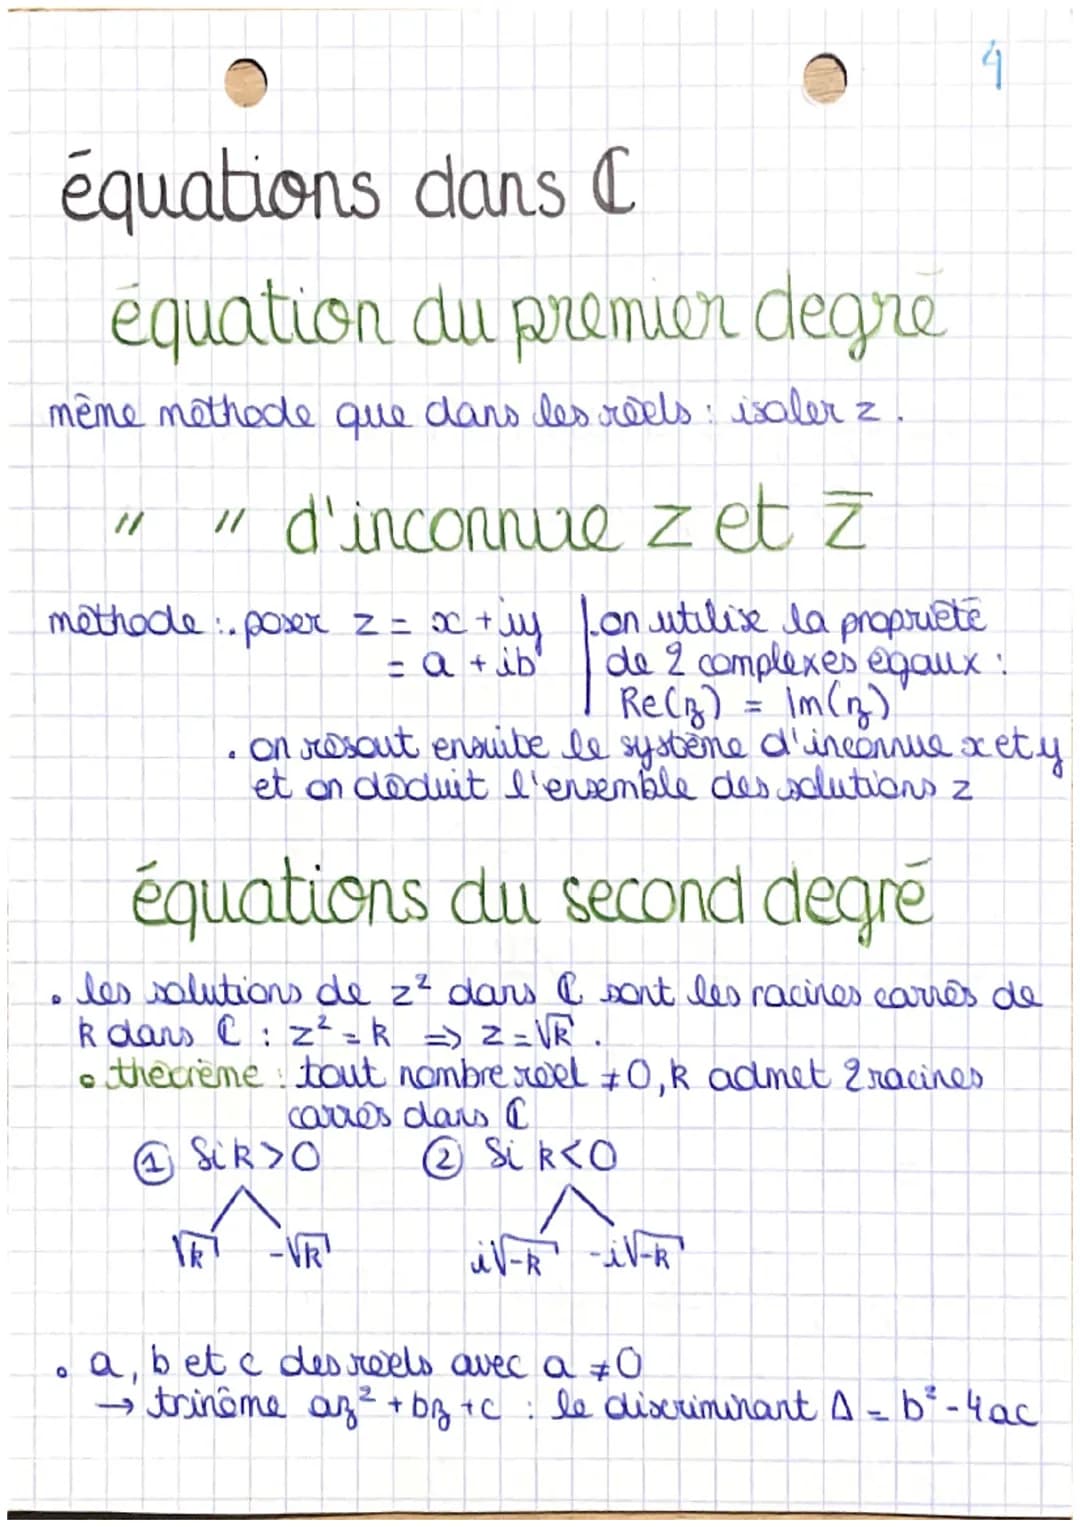 4
équations dans ℂ
équation du premier degré
même méthode que dans les réels : isoler z.
" " d'inconnue z et z̅
méthode : . poser z = x + iy
= a + ib
. on utilise la propriété
de 2 complexes égaux :
Re(z) = Im(z)
. on résout ensuite le système d'inconnue x et y
et on déduit l'ensemble des solutions z
équations du second degré
. les solutions de z² dans ℂ sont les racines carrés de
k dans ℂ : z² = k ⇒ z = √k.
• théorème : tout nombre réel ≠ 0, k admet 2 racines
carrés dans ℂ
① Si k > 0 ② Si k < 0
√k -√k i√-k -i√-k
• a, b et c des réels avec a ≠ 0
→ trinôme az² + bz + c : le discriminant Δ = b² - 4ac